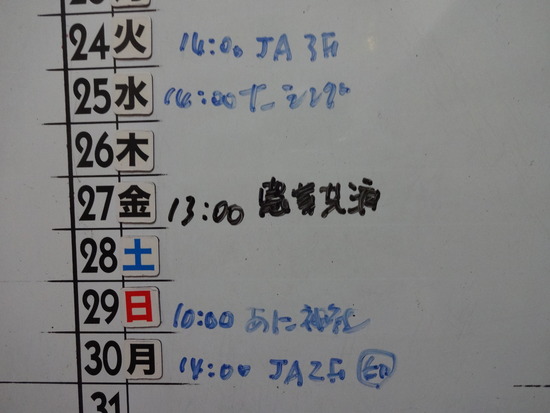 24 火 14:00 JA3F
25 水 14:00
26 木
27 金 13:00
28 土
29 日 10:00 あに神社
30 月 14:00 JA2F
31